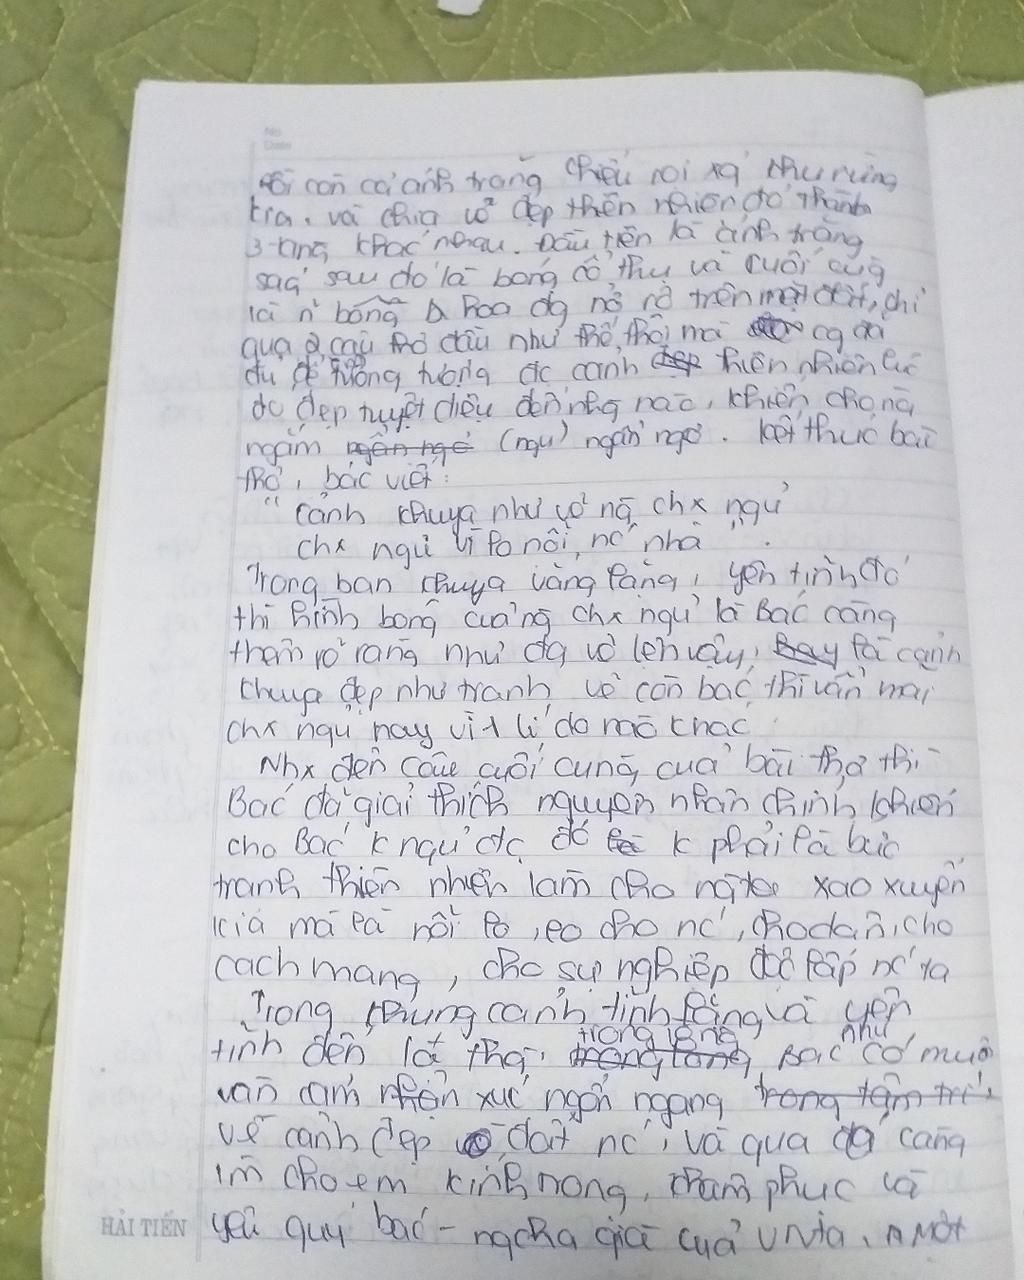 No
Date
rồi còn cả ánh trăng chiếu rọi xg' khu rừng
kia. và chia vẻ đẹp thiên nhiên đó thành
3 tầng khác nhau. Đầu tiên là ánh trăng
sag' sau đó là bóng cổ thụ và cuối cùg
là n~ bông hoa đg nở rộ trên mặt đất, chỉ
qua 2 câu thơ đầu như thế thôi mà cg đã
đủ để tưởng tượng đc cảnh thiên nhiên lúc
đó đẹp tuyệt diệu đến nhg nào, khiến cho ng
ngắm (ngư) ngẩn ngơ. kết thúc bài
thơ, bác viết:
"cảnh khuya như vẽ ng chx ngủ
chx ngủ vì lo nỗi nc' nhà".
Trong ban khuya vàng lặng, yên tĩnh đó
thì hình bóng của ng chx ngủ là Bác càng
thêm rõ ràng như đg vẽ lên vậy, là cảnh
khuya đẹp như tranh vẽ còn bác thì vẫn mãi
chx ngủ hay vì 1 lí do nào khác
Nhx đến câu cuối cùng của bài thơ thì
Bác đã giải thích nguyên nhân chính khiến
cho Bác k ngủ đc, đó k phải là bức
tranh thiên nhiên làm cho ng xao xuyến
kia mà là nỗi lo, lo cho nc', cho dân, cho
cách mạng, cho sự nghiệp độc lập nc' ta
Trong khung cảnh tĩnh lặng và yên
tĩnh đến lạ thg', trong lòng Bác như có muôn
vàn cảm xúc ngổn ngang
về cảnh đẹp đất nc', và qua đó càng
làm cho em kính trọng, khâm phục và
yêu quý bác - ng cha già của VN ta, Một
HẢI TIẾN